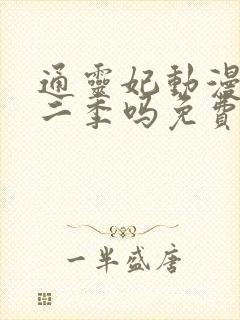 通靈妃動漫
二季嗎免費
一半盛唐